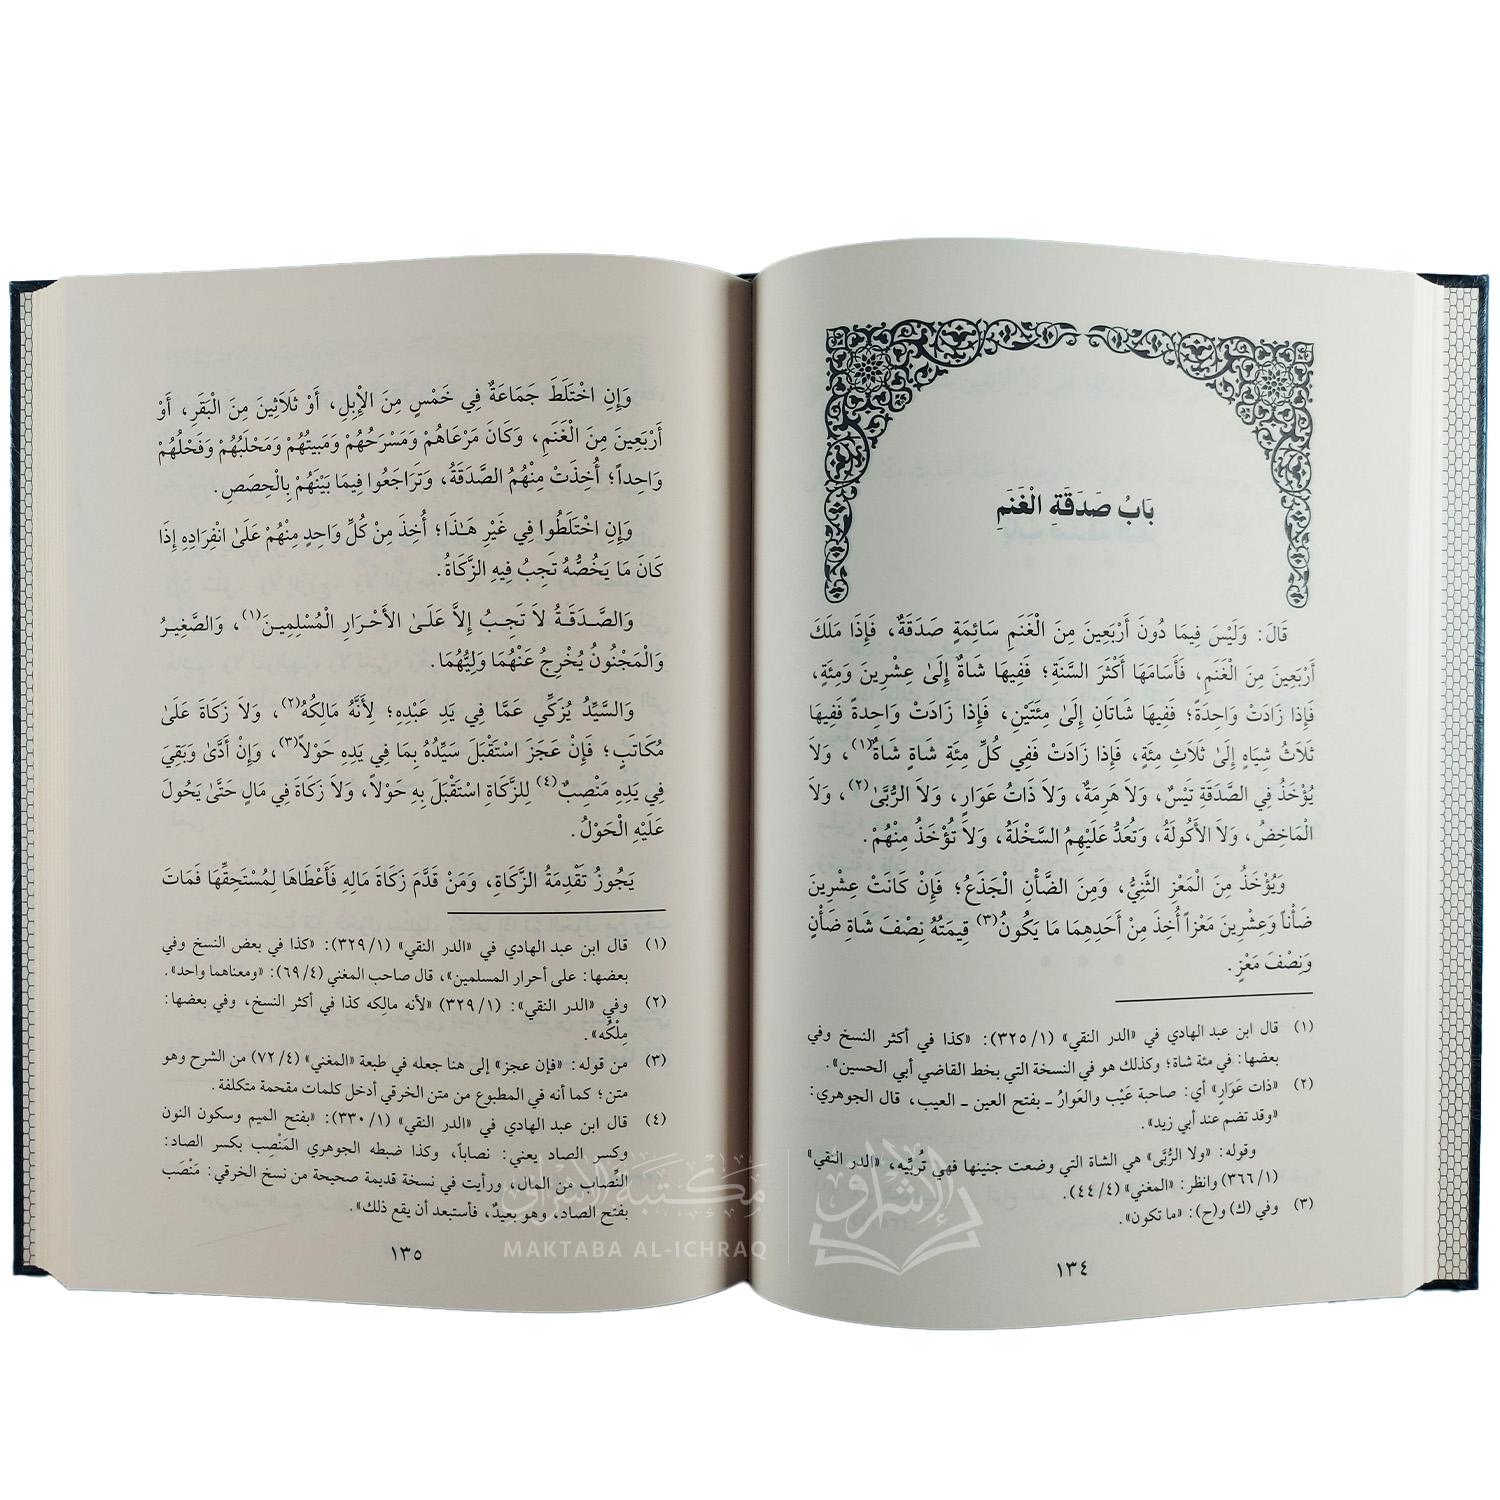 بَابُ صَدَقَةِ الْغَنَمِ
قَالَ: وَلَيْسَ فِيمَا دُونَ أَرْبَعِينَ مِنَ الْغَنَمِ سَائِمَةٍ صَدَقَةٌ، فَإِذَا مَلَكَ
أَرْبَعِينَ مِنَ الْغَنَمِ، فَأَسَامَهَا أَكْثَرَ السَّنَةِ؛ فَفِيهَا شَاةٌ إِلَىٰ عِشْرِينَ وَمِئَةٍ،
فَإِذَا زَادَتْ وَاحِدَةً؛ فَفِيهَا شَاتَانِ إِلَىٰ مِئَتَيْنِ، فَإِذَا زَادَتْ وَاحِدَةً فَفِيهَا
ثَلَاثُ شِيَاهٍ إِلَىٰ ثَلَاثِ مِئَةٍ، فَإِذَا زَادَتْ فَفِي كُلِّ مِئَةِ شَاةٍ شَاةٌ(١)، وَلاَ
يُؤْخَذُ فِي الصَّدَقَةِ تَيْسٌ، وَلاَ هَرِمَةٌ، وَلاَ ذَاتُ عَوَارٍ، وَلاَ الرُّبَّىٰ(٢)، وَلاَ
الْمَاخِضُ، وَلاَ الأَكُولَةُ، وَتُعَدُّ عَلَيْهِمُ السَّخْلَةُ، وَلاَ تُؤْخَذُ مِنْهُمْ.
وَيُؤْخَذُ مِنَ الْمَعْزِ الثَّنِيُّ، وَمِنَ الضَّأْنِ الْجَذَعُ؛ فَإِنْ كَانَتْ عِشْرِينَ
ضَأْناً وَعِشْرِينَ مَعْزاً أُخِذَ مِنْ أَحَدِهِمَا مَا يَكُونُ(٣) قِيمَتُهُ نِصْفَ شَاةِ ضَأْنٍ
وَنِصْفَ مَعْزٍ.
(١) قال ابن عبد الهادي في «الدر النقي» (١/ ٣٢٥): «كذا في أكثر النسخ وفي
بعضها: في مئة شاة؛ وكذلك هو في النسخة التي بخط القاضي أبي الحسين».
(٢) «ذات عَوَارٍ» أي: صاحبة عَيْب والعَوارُ ـ بفتح العين ـ العيب، قال الجوهري:
«وقد تضم عند أبي زيد».
وقوله: «ولا الرُّبَّى» هي الشاة التي وضعت جنينها فهي تُربِّيه، «الدر النقي»
(١/ ٣٦٦) وانظر: «المغني» (٤/ ٤٤).
(٣) وفي (ك) و(ح): «ما تكون».
١٣٤
وَإِنِ اخْتَلَطَ جَمَاعَةٌ فِي خَمْسٍ مِنَ الْإِبِلِ، أَوْ ثَلاَثِينَ مِنَ الْبَقَرِ، أَوْ
أَرْبَعِينَ مِنَ الْغَنَمِ، وَكَانَ مَرْعَاهُمْ وَمَسْرَحُهُمْ وَمَبِيتُهُمْ وَمَحْلَبُهُمْ وَفَحْلُهُمْ
وَاحِداً؛ أُخِذَتْ مِنْهُمُ الصَّدَقَةُ، وَتَرَاجَعُوا فِيمَا بَيْنَهُمْ بِالْحِصَصِ.
وَإِنِ اخْتَلَطُوا فِي غَيْرِ هَـٰذَا؛ أُخِذَ مِنْ كُلِّ وَاحِدٍ مِنْهُمْ عَلَىٰ انْفِرَادِهِ إِذَا
كَانَ مَا يَخُصُّهُ تَجِبُ فِيهِ الزَّكَاةُ.
وَالصَّدَقَةُ لاَ تَجِبُ إِلاَّ عَلَىٰ الأَحْرَارِ الْمُسْلِمِينَ(١)، وَالصَّغِيرُ
وَالْمَجْنُونُ يُخْرِجُ عَنْهُمَا وَلِيُّهُمَا.
وَالسَّيِّدُ يُزَكِّي عَمَّا فِي يَدِ عَبْدِهِ؛ لِأَنَّهُ مَالِكُهُ(٢)، وَلاَ زَكَاةَ عَلَىٰ
مُكَاتَبٍ؛ فَإِنْ عَجَزَ اسْتَقْبَلَ سَيِّدُهُ بِمَا فِي يَدِهِ حَوْلاً(٣)، وَإِنْ أَدَّىٰ وَبَقِيَ
فِي يَدِهِ مَنْصِبٌ(٤) لِلزَّكَاةِ اسْتَقْبَلَ بِهِ حَوْلاً، وَلاَ زَكَاةَ فِي مَالٍ حَتَّىٰ يَحُولَ
عَلَيْهِ الْحَوْلُ.
يَجُوزُ تَقْدِمَةُ الزَّكَاةِ، وَمَنْ قَدَّمَ زَكَاةَ مَالِهِ فَأَعْطَاهَا لِمُسْتَحِقِّهَا فَمَاتَ
(١) قال ابن عبد الهادي في «الدر النقي» (١/ ٣٢٩): «كذا في بعض النسخ وفي
بعضها: على أحرار المسلمين»، قال صاحب المغني (٤/ ٦٩): «ومعناهما واحد».
(٢) وفي «الدر النقي»: (١/ ٣٢٩) «لأنه مالكه كذا في أكثر النسخ، وفي بعضها:
مِلْكُه».
(٣) من قوله: «فإن عجز» إلى هنا جعله في طبعة «المغني» (٤/ ٧٢) من الشرح وهو
متن؛ كما أنه في المطبوع من متن الخرقي أدخل كلمات مقحمة متكلفة.
(٤) قال ابن عبد الهادي في «الدر النقي» (١/ ٣٣٠): «بفتح الميم وسكون النون
وكسر الصاد يعني: نصاباً، وكذا ضبطه الجوهري المَنْصِب بكسر الصاد:
النِّصاب من المال، ورأيت في نسخة قديمة صحيحة من نسخ الخرقي: مَنْصَب
بفتح الصاد، وهو بعيدٌ، فأستبعد أن يقع ذلك».
١٣٥
مكتبة الإشراق
MAKTABA AL-ICHRAQ
الإشراق